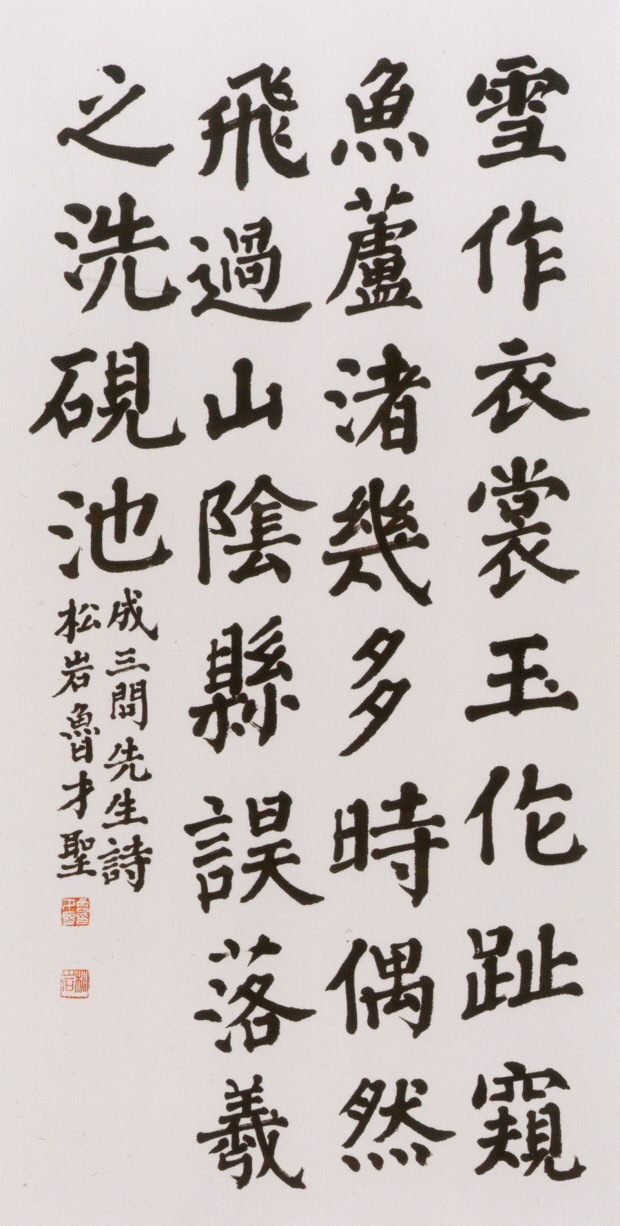 雪作衣裳玉作趾窺
魚蘆渚幾多時偶然
飛過山陰縣誤落羲
之洗硯池
成三問先生詩
松岩魯才聖